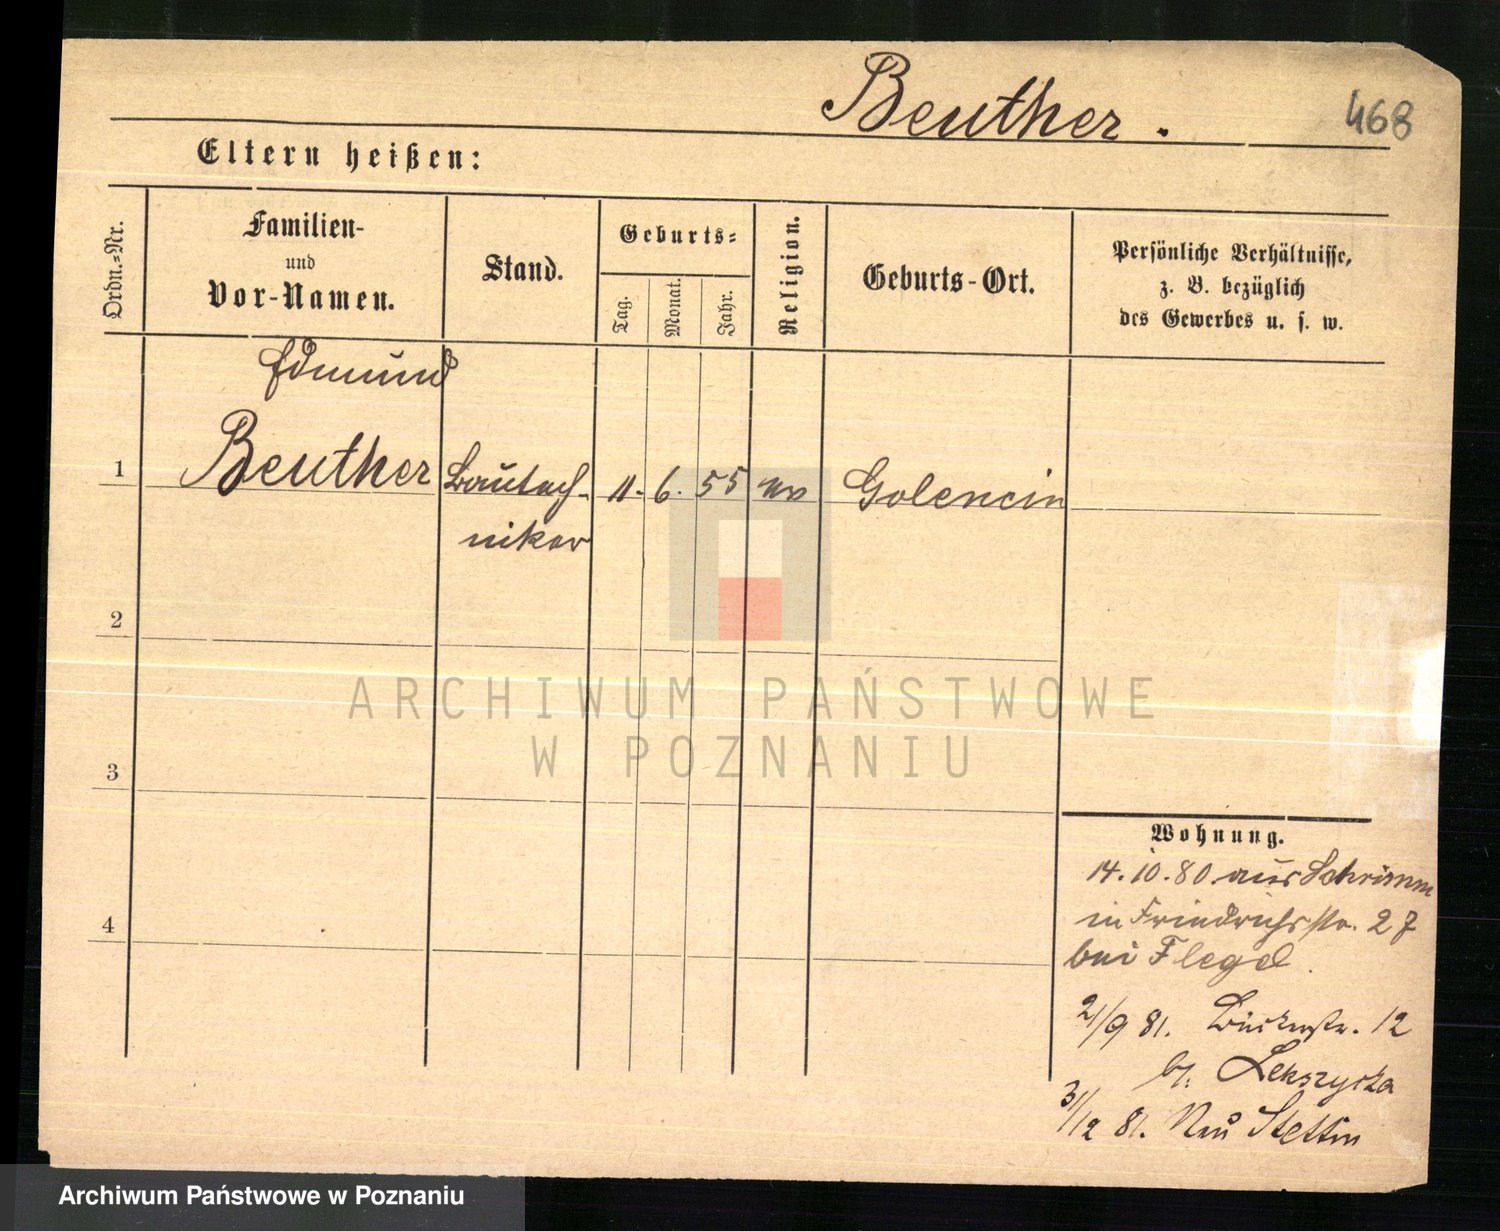 Beuther.
468
Eltern heißen:
Ordn.=Nr.
Familien-
und
Vor-Namen.
Stand.
Geburts=
Tag.
Monat.
Jahr.
Religion.
Geburts-Ort.
Persönliche Verhältnisse,
z. B. bezüglich
des Gewerbes u. s. w.
Edmund
1 Beuther Bautech- 11. 6. 55 Golencin
niker
2
3
4
ARCHIWUM PAŃSTWOWE
W POZNANIU
Wohnung.
14.10.80. aus Schrimm
in Friedrichsstr. 27
bei Flegel.
21/9 81. 12
b. Lekszycka
31/12 81. Neu Stettin
Archiwum Państwowe w Poznaniu